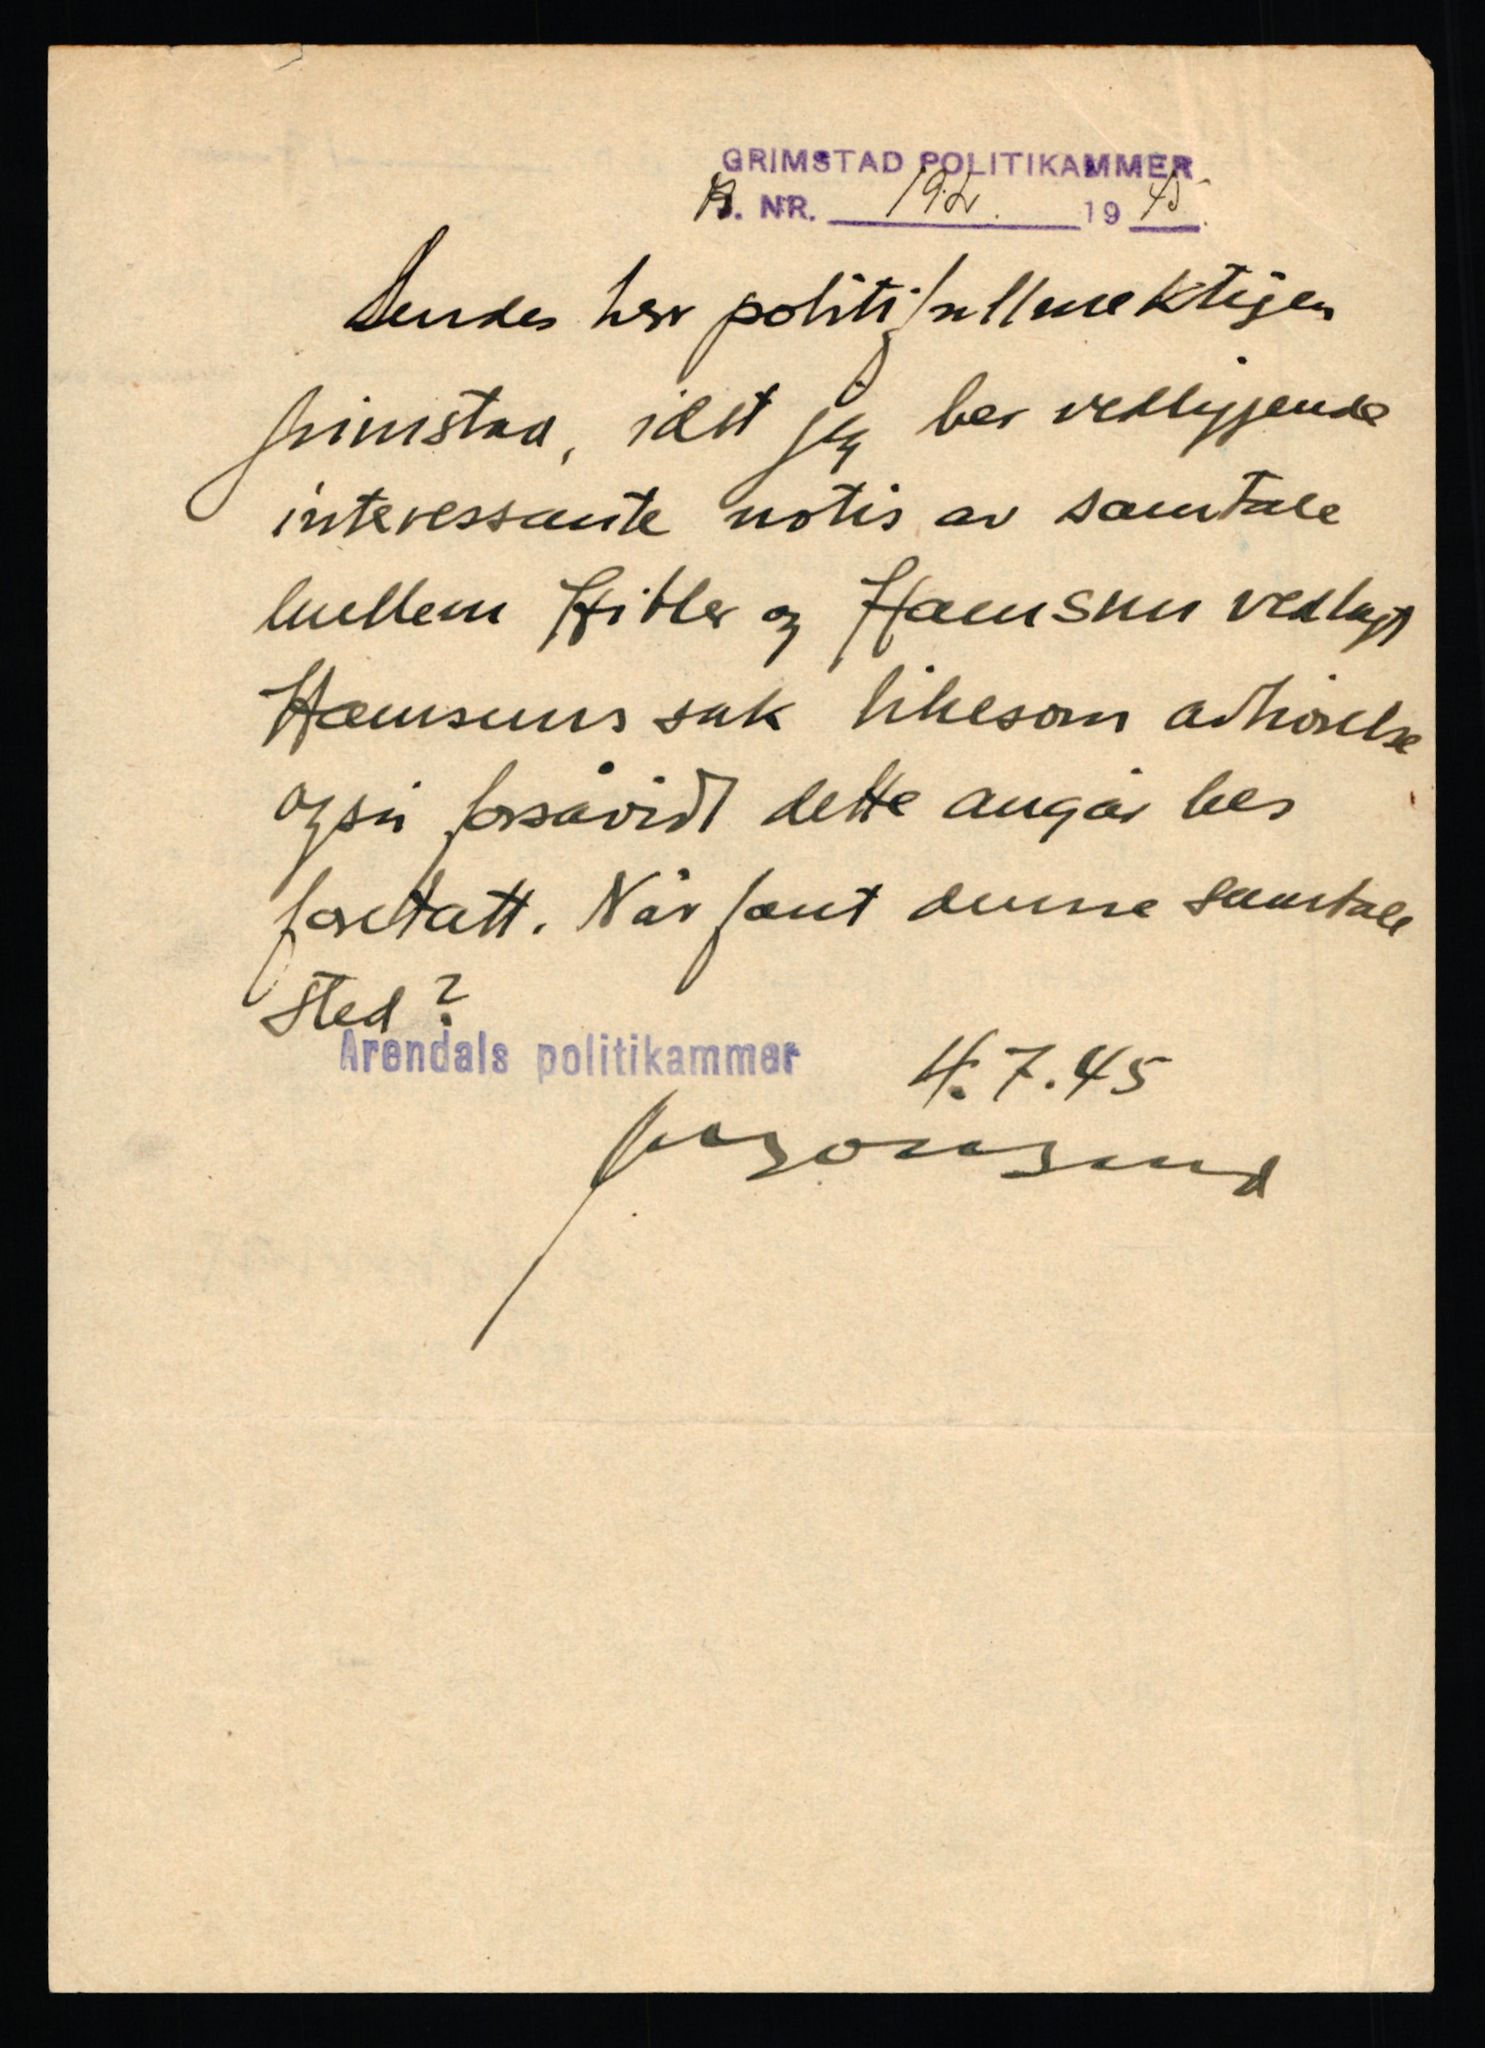 GRIMSTAD POLITIKAMMER
B. NR. 192. 1945.
Sendes herr politifullmektigen
Grimstad, idet jeg ber vedliggende
interessante notis av samtale
mellem Hitler og Hamsun vedlagt
Hamsuns sak likesom avhörelse
også forsåvidt dette angår bes
foretatt. Når fant denne samtale
sted?
Arendals politikammer 4.7.45